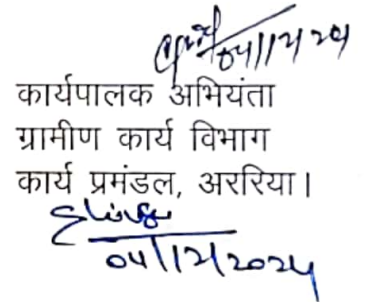 04/12/24
कार्यपालक अभियंता
ग्रामीण कार्य विभाग
कार्य प्रमंडल, अररिया।
04/12/2024